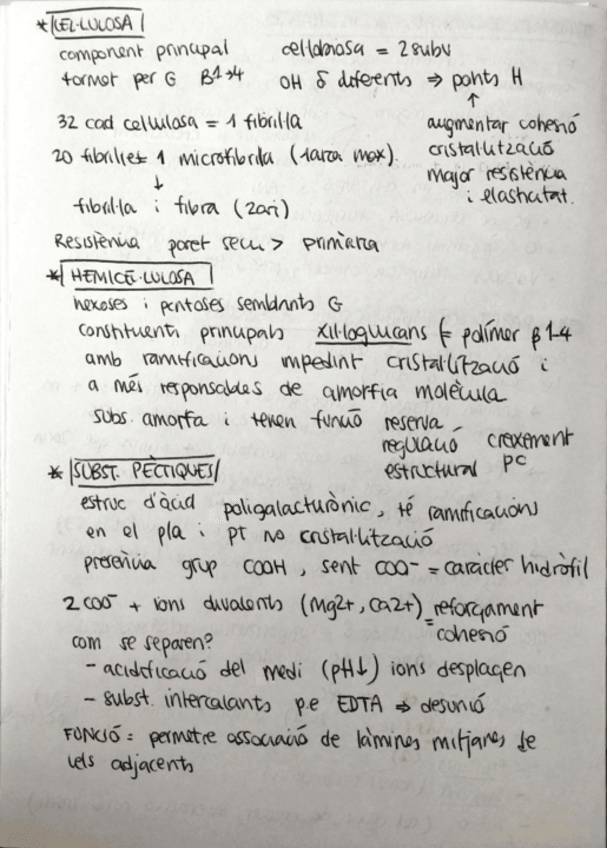 * CEL·LULOSA
component principal cel·lobiosa = 2 subu
format per G β1→4 OH δ diferents ⇒ ponts H
↑
32 cad cellulosa = 1 fibril·la augmentar cohesió
cristal·lització
20 fibrilles 1 microfibril·la (1ària max).
major resistència
i elasticitat.
↓
fibril·la i fibra (2ari)
Resistència paret secu > primària
* HEMICEL·LULOSA
hexoses i pentoses semblants G
constituents principals xil·loglucans (= polímer β1-4
amb ramificacions impedint cristal·lització i
a més responsables de amorfia molècula
subs. amorfa i tenen funció reserva
regulació creixement
estructural PC
* SUBST. PÈCTIQUES
estruc d'àcid poligalacturònic, té ramificacions
en el pla i PT no cristal·lització
presència grup COOH, sent COO- = caràcter hidròfil
2 COO- + ions divalents (Mg2+, Ca2+) = reforçament
cohesió
com se separen?
- acidificació del medi (pH↓) ions desplaçen
- subst. intercalants p.e EDTA ⇒ desunió
FUNCIÓ = permetre associació de làmines mitjanes de
cels adjacents